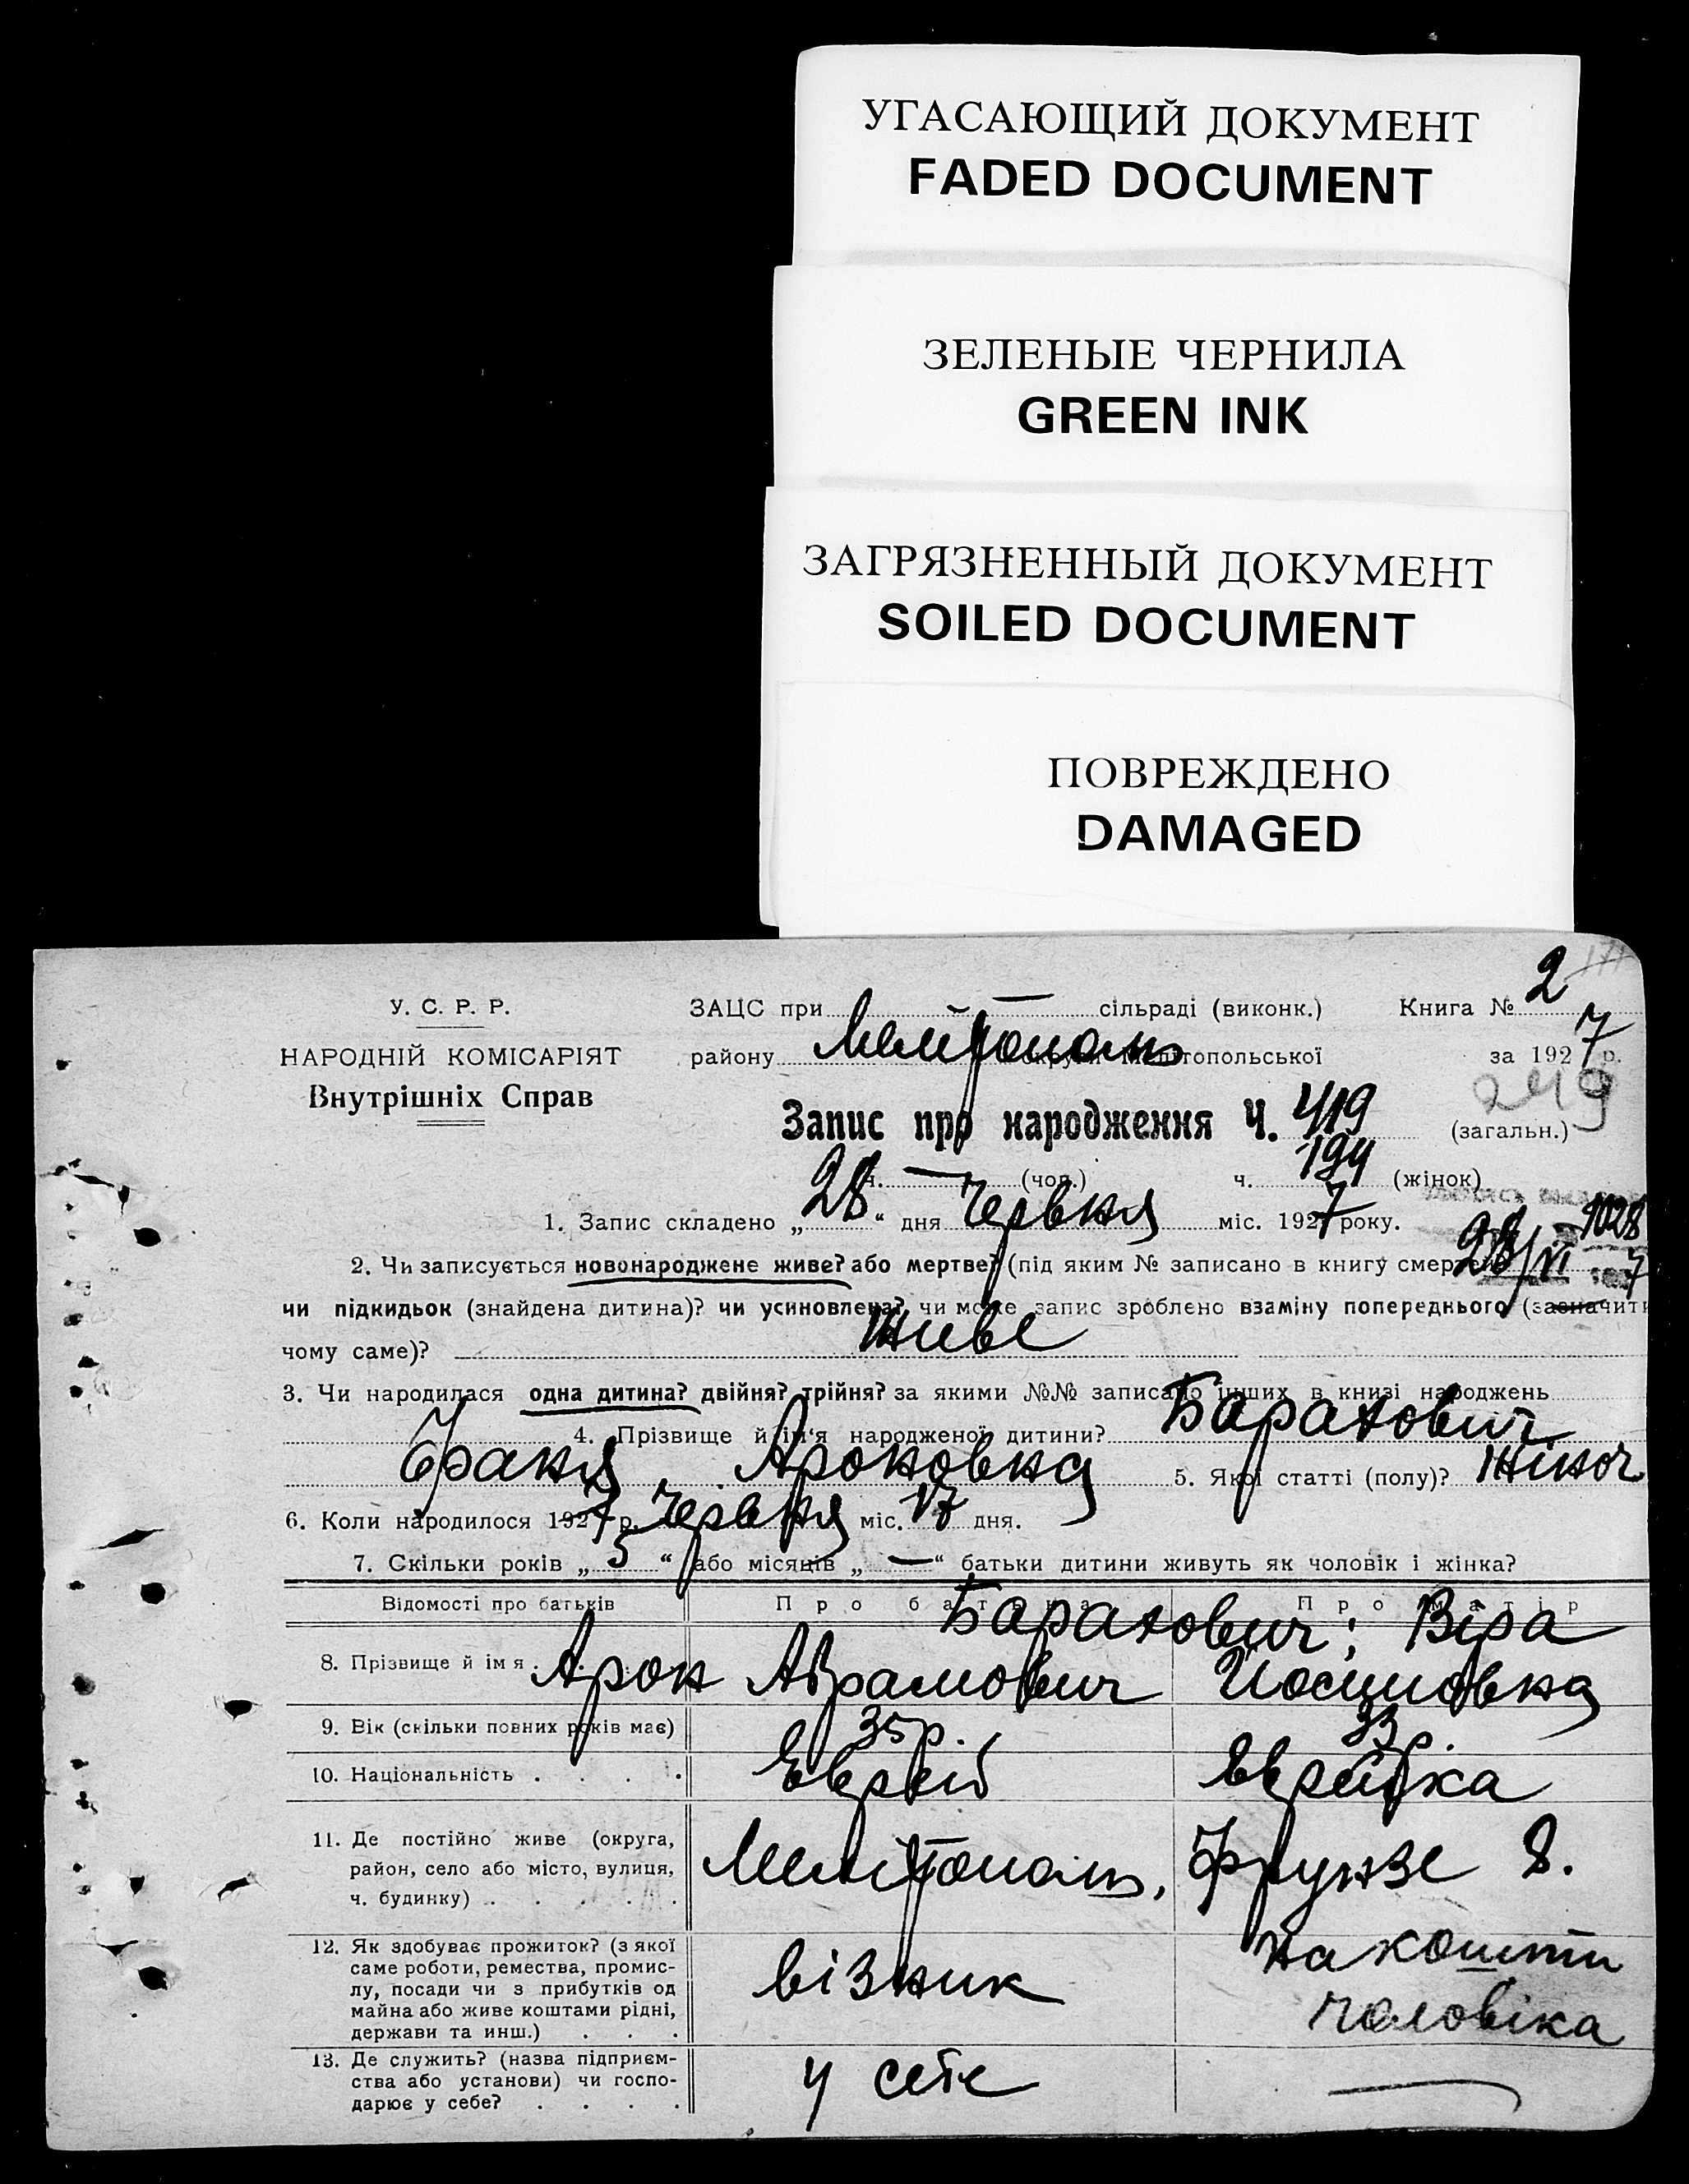 УГАСАЮЩИЙ ДОКУМЕНТ
FADED DOCUMENT
ЗЕЛЕНЫЕ ЧЕРНИЛА
GREEN INK
ЗАГРЯЗНЕННЫЙ ДОКУМЕНТ
SOILED DOCUMENT
ПОВРЕЖДЕНО
DAMAGED
У. С. Р. Р.
НАРОДНІЙ КОМІСАРІЯТ
Внутрішніх Справ
ЗАЦС при — сільраді (виконк.) Книга № 2
району Мелітополь округи Мелітопольської за 1927 р.
249
Запис про народження Ч. 419 (загальн.)
ч. — (чол.) ч. 194 (жінок)
1. Запис складено „28“ дня Червня міс. 1927 року.
1028
2. Чи записується новонароджене живе? або мертве? (під яким № записано в книгу смертей 28/VI 7
чи підкидьок (знайдена дитина)? чи усиновлена? чи може запис зроблено взаміну попереднього (зазначити
чому саме)? Живе
3. Чи народилася одна дитина? двійня? трійня? за якими №№ записано інших в книзі народжень
4. Прізвище й ім'я народженої дитини? Барахович
Фаня Ароновна 5. Якої статті (полу)? Жіноч
6. Коли народилося 1927 р. Червня міс. 17 дня.
7. Скільки років „5“ або місяців „—“ батьки дитини живуть як чоловік і жінка?
Відомості про батьків Про батька Про матір
Барахович; Віра
8. Прізвище й імя Арон Абрамович Иосиповна
9. Вік (скільки повних років має) 35 р. 33 р.
10. Національність . . . . Еврей Еврейка
11. Де постійно живе (округа,
район, село або місто, вулиця,
ч. будинку) . . . . . Мелітополь, Фрунзе 8.
12. Як здобуває прожиток? (з якої
саме роботи, ремества, промис-
лу, посади чи з прибутків од
майна або живе коштами рідні,
держави та инш.) . . . візник на кошти
чоловіка
13. Де служить? (назва підприєм-
ства або установи) чи госпо-
дарює у себе? . . . . у себе —